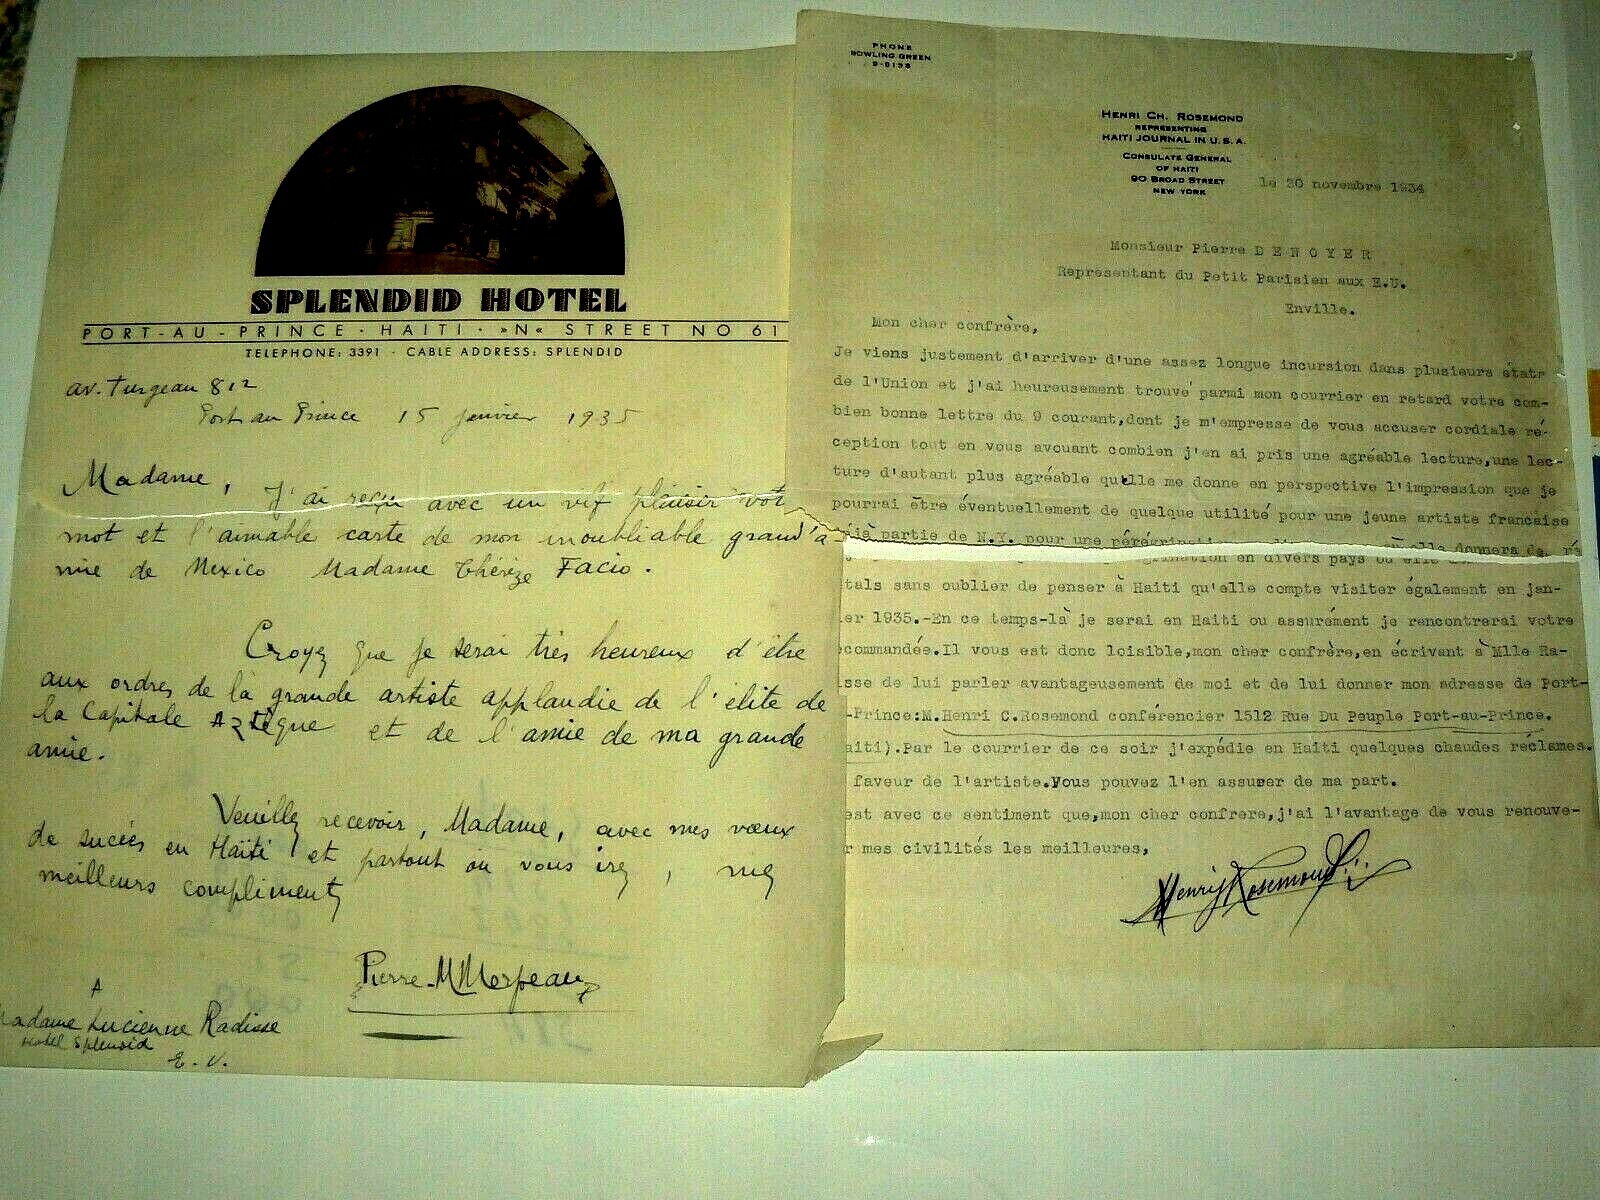 SPLENDID HOTEL
PORT-AU-PRINCE · HAITI · »N« STREET NO 61
TELEPHONE: 3391 · CABLE ADDRESS: SPLENDID
av. Turgeau 812
Port au Prince 15 janvier 1935
Madame, J'ai reçu avec un vif plaisir vot
mot et l'aimable carte de mon inoubliable grand'a
mie de Mexico Madame Thérèze Facio.
Croyez que je serai très heureux d'être
aux ordres de la grande artiste applaudie de l'élite de
la Capitale Aztèque et de l'amie de ma grande
amie.
Veuillez recevoir, Madame, avec mes vœux
de succès en Haïti et partout où vous irez, mes
meilleurs compliments
Pierre-M Morpeau
A
Madame Lucienne Radisse
Hotel Splendid
E. V.
PHONE
BOWLING GREEN
9-8138
HENRI CH. ROSEMOND
REPRESENTING
HAITI JOURNAL IN U.S.A.
CONSULATE GENERAL
OF HAITI
90 BROAD STREET
NEW YORK
le 20 novembre 1934
Monsieur Pierre DENOYER
Representant du Petit Parisien aux E.U.
Enville.
Mon cher confrère,
Je viens justement d'arriver d'une assez longue incursion dans plusieurs états
de l'Union et j'ai heureusement trouvé parmi mon courrier en retard votre com-
bien bonne lettre du 9 courant,dont je m'empresse de vous accuser cordiale ré-
ception tout en vous avouant combien j'en ai pris une agréable lecture,une lec-
ture d'autant plus agréable qu'elle me donne en perspective l'impression que je
pourrai être éventuellement de quelque utilité pour une jeune artiste française
éjà partie de N.Y. pour une pérégrination en divers pays où elle donnera de ré
tals sans oublier de penser à Haiti qu'elle compte visiter également en jan-
er 1935.-En ce temps-là je serai en Haiti ou assurément je rencontrerai votre
commandée.Il vous est donc loisible,mon cher confrère,en écrivant à Mlle Ra-
sse de lui parler avantageusement de moi et de lui donner mon adresse de Port-
-Prince:M.Henri C.Rosemond conférencier 1512 Rue Du Peuple Port-au-Prince.
aiti).Par le courrier de ce soir j'expédie en Haiti quelques chaudes réclames.
faveur de l'artiste.Vous pouvez l'en assurer de ma part.
est avec ce sentiment que,mon cher confrere,j'ai l'avantage de vous renouve-
r mes civilités les meilleures,
Henry Rosemond